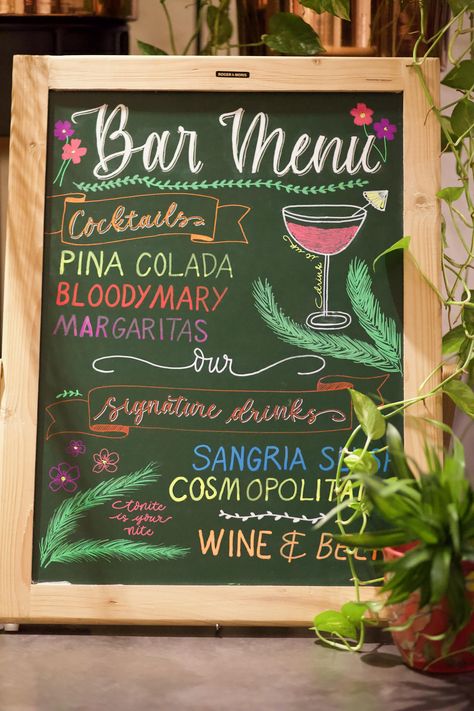 ROGER & MORIS
Bar Menu
Cocktails
PINA COLADA
BLOODYMARY
MARGARITAS
drink
up
our
signature drinks
SANGRIA
COSMOPOLITAN
tonite
is your
nite
WINE & BEER